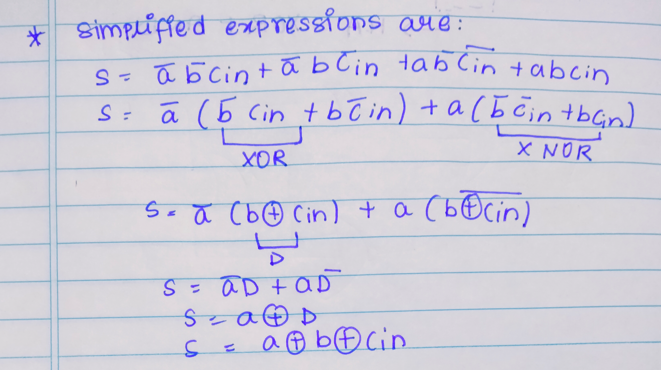 * Simplified expressions are:
S = a̅ b̅ cin + a̅ b c̅in + a b̅ c̅i̅n̅ + abcin
S = a̅ (b̅ cin + b c̅in) + a (b̅ c̅in + bcin)
XOR X NOR
S = a̅ (b ⊕ cin) + a (b̅ ⊕̅ c̅i̅n̅)
D
S = a̅D + aD̅
S = a ⊕ D
S = a ⊕ b ⊕ cin